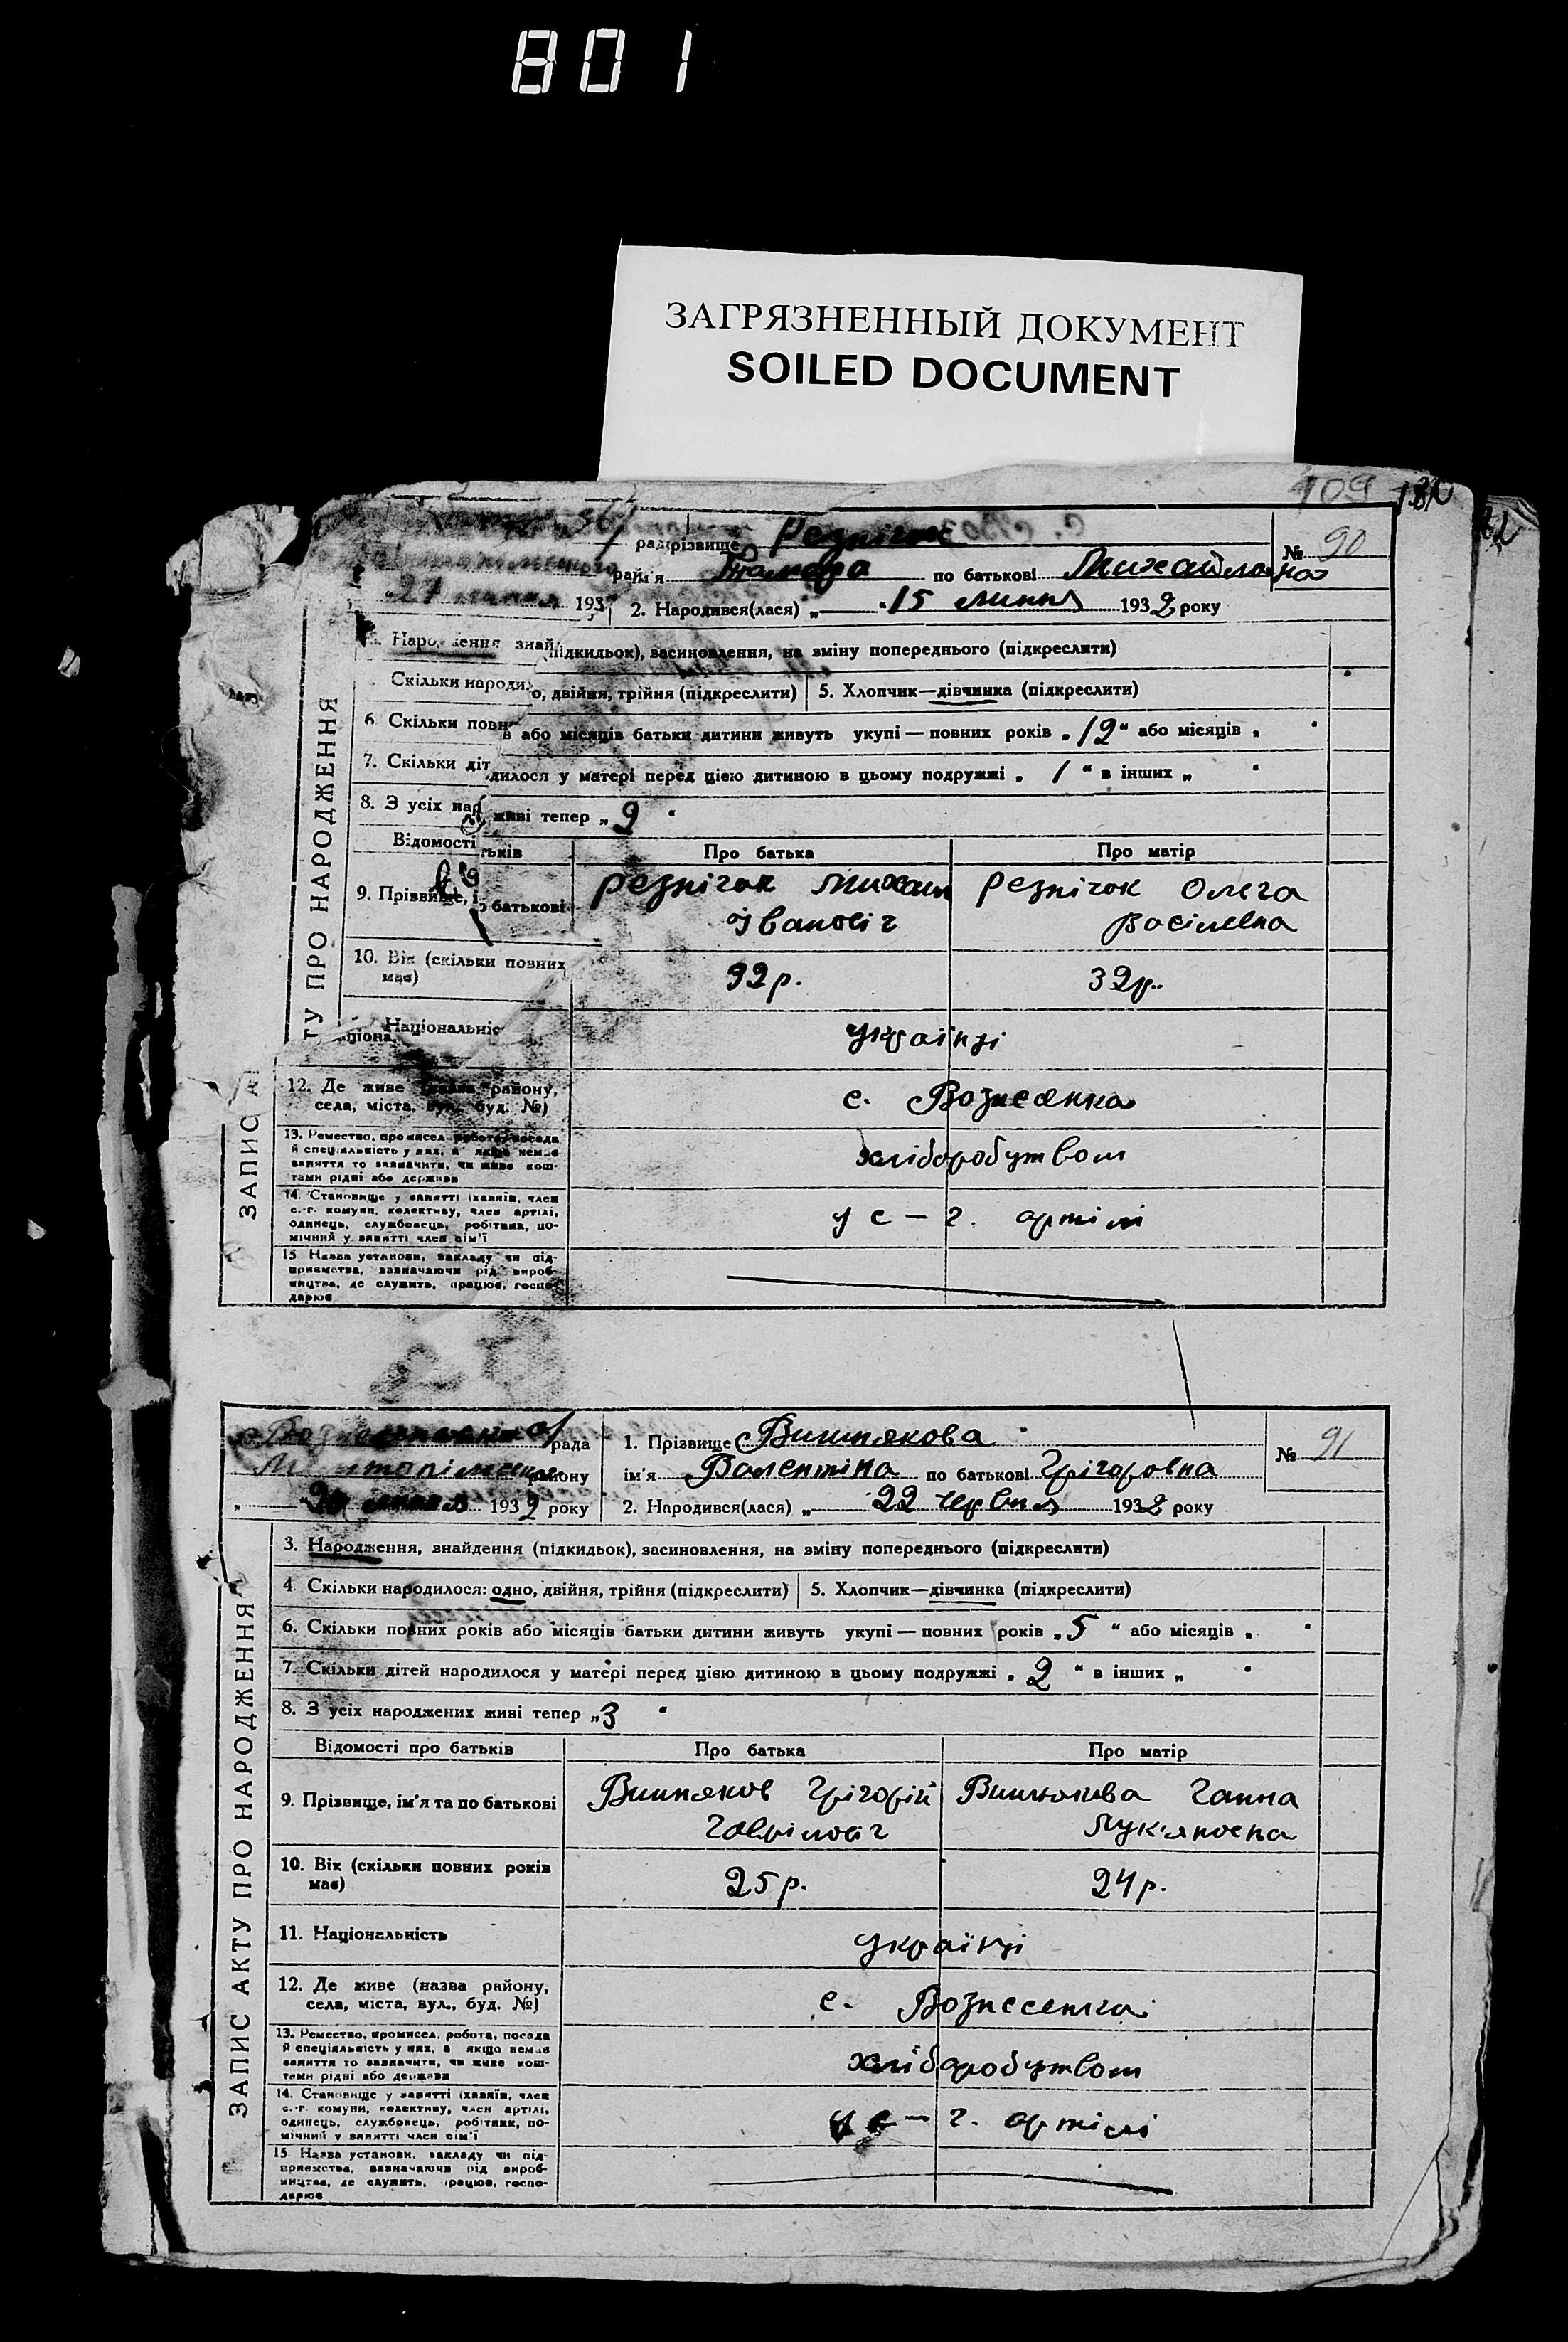 801
ЗАГРЯЗНЕННЫЙ ДОКУМЕНТ
SOILED DOCUMENT
109
різвище Резнічок
№ 90
Тамара по батькові Михайловна
27 липня 193
2. Народився(лася) „ 15 липня 1932 року
ТУ ПРО НАРОДЖЕННЯ
ЗАПИС А
знай підкидьок), засиновлення, на зміну попереднього (підкреслити)
Скільки народил о, двійня, трійня (підкреслити) 5. Хлопчик—дівчинка (підкреслити)
6. Скільки повн в або місяців батьки дитини живуть укупі — повних років „12“ або місяців „ “
7. Скільки діт дилося у матері перед цією дитиною в цьому подружжі „ 1 “ в інших „ “
8. З усіх на живі тепер „2 “
Відомості тьків Про батька Про матір
9. Прізвище, і о батькові
Резнічок Михаил Івановіч
Резнічок Ольга Васілевна
10. Вік (скільки повних має) 32р. 32р.
Національніс українці
12. Де живе (назва району, села, міста, вул., буд. №) с. Вознесенка
13. Ремество, промисел, робота, посада й спеціяльність у них, а якщо немає заняття то зазначити, чи живе коштами рідні або держави хліборобутвом
14. Становище у занятті (хазяїн, член с.-г. комуни, колективу, член артілі, одинець, службовець, робітник, помічний у занятті член сім'ї у с — г. артілі
15 Назва установи, закладу чи підприємства, зазначаючи рід виробництва, де служить, працює, господарює
рада
району
1932 року
1. Прізвище Вишнякова
№ 91
ім'я Валентіна по батькові Грігоровна
2. Народився(лася) „ 22 червня 1932 року
ЗАПИС АКТУ ПРО НАРОДЖЕННЯ
3. Народження, знайдення (підкидьок), засиновлення, на зміну попереднього (підкреслити)
4. Скільки народилося: одно, двійня, трійня (підкреслити) 5. Хлопчик—дівчинка (підкреслити)
6. Скільки повних років або місяців батьки дитини живуть укупі — повних років „5 “ або місяців „ “
7. Скільки дітей народилося у матері перед цією дитиною в цьому подружжі „ 2 “ в інших „ “
8. З усіх народжених живі тепер „3 “
Відомості про батьків Про батька Про матір
9. Прізвище, ім'я та по батькові
Вишняков Грігорій Гавріловіч
Вишнякова Ганна Лук'яновна
10. Вік (скільки повних років має) 25р. 24р.
11. Національність українці
12. Де живе (назва району, села, міста, вул., буд. №) с. Вознесенка
13. Ремество, промисел, робота, посада й спеціяльність у них, а якщо немає заняття то зазначити, чи живе коштами рідні або держави хліборобутвом
14. Становище у занятті (хазяїн, член с.-г. комуни, колективу, член артілі, одинець, службовець, робітник, помічний у занятті член сім'ї у с — г. артілі
15. Назва установи, закладу чи підприємства, зазначаючи рід виробництва, де служить, працює, господарює